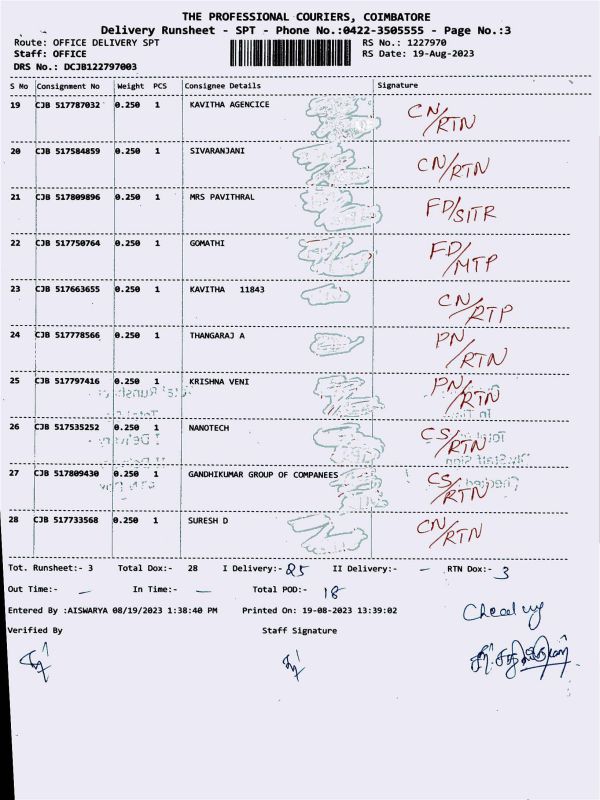 THE PROFESSIONAL COURIERS, COIMBATORE
Delivery Runsheet - SPT - Phone No.:0422-3505555 - Page No.:3
Route: OFFICE DELIVERY SPT RS No.: 1227970
Staff: OFFICE RS Date: 19-Aug-2023
DRS No.: DCJB122797003
S No Consignment No Weight PCS Consignee Details Signature
19 CJB 517787032 0.250 1 KAVITHA AGENCICE CN/RTN
20 CJB 517584859 0.250 1 SIVARANJANI CN/RTN
21 CJB 517809896 0.250 1 MRS PAVITHRAL FD/SITR
22 CJB 517750764 0.250 1 GOMATHI FD/MTP
23 CJB 517663655 0.250 1 KAVITHA 11843 CN/RTP
24 CJB 517778566 0.250 1 THANGARAJ A PN/RTN
25 CJB 517797416 0.250 1 KRISHNA VENI PN/RTN
26 CJB 517535252 0.250 1 NANOTECH CS/RTN
27 CJB 517809430 0.250 1 GANDHIKUMAR GROUP OF COMPANEES CS/RTN
28 CJB 517733568 0.250 1 SURESH D CN/RTN
Tot. Runsheet:- 3 Total Dox:- 28 I Delivery:- 25 II Delivery:- — RTN Dox:- 3
Out Time:- — In Time:- — Total POD:- 18
Entered By :AISWARYA 08/19/2023 1:38:40 PM Printed On: 19-08-2023 13:39:02
Verified By Staff Signature